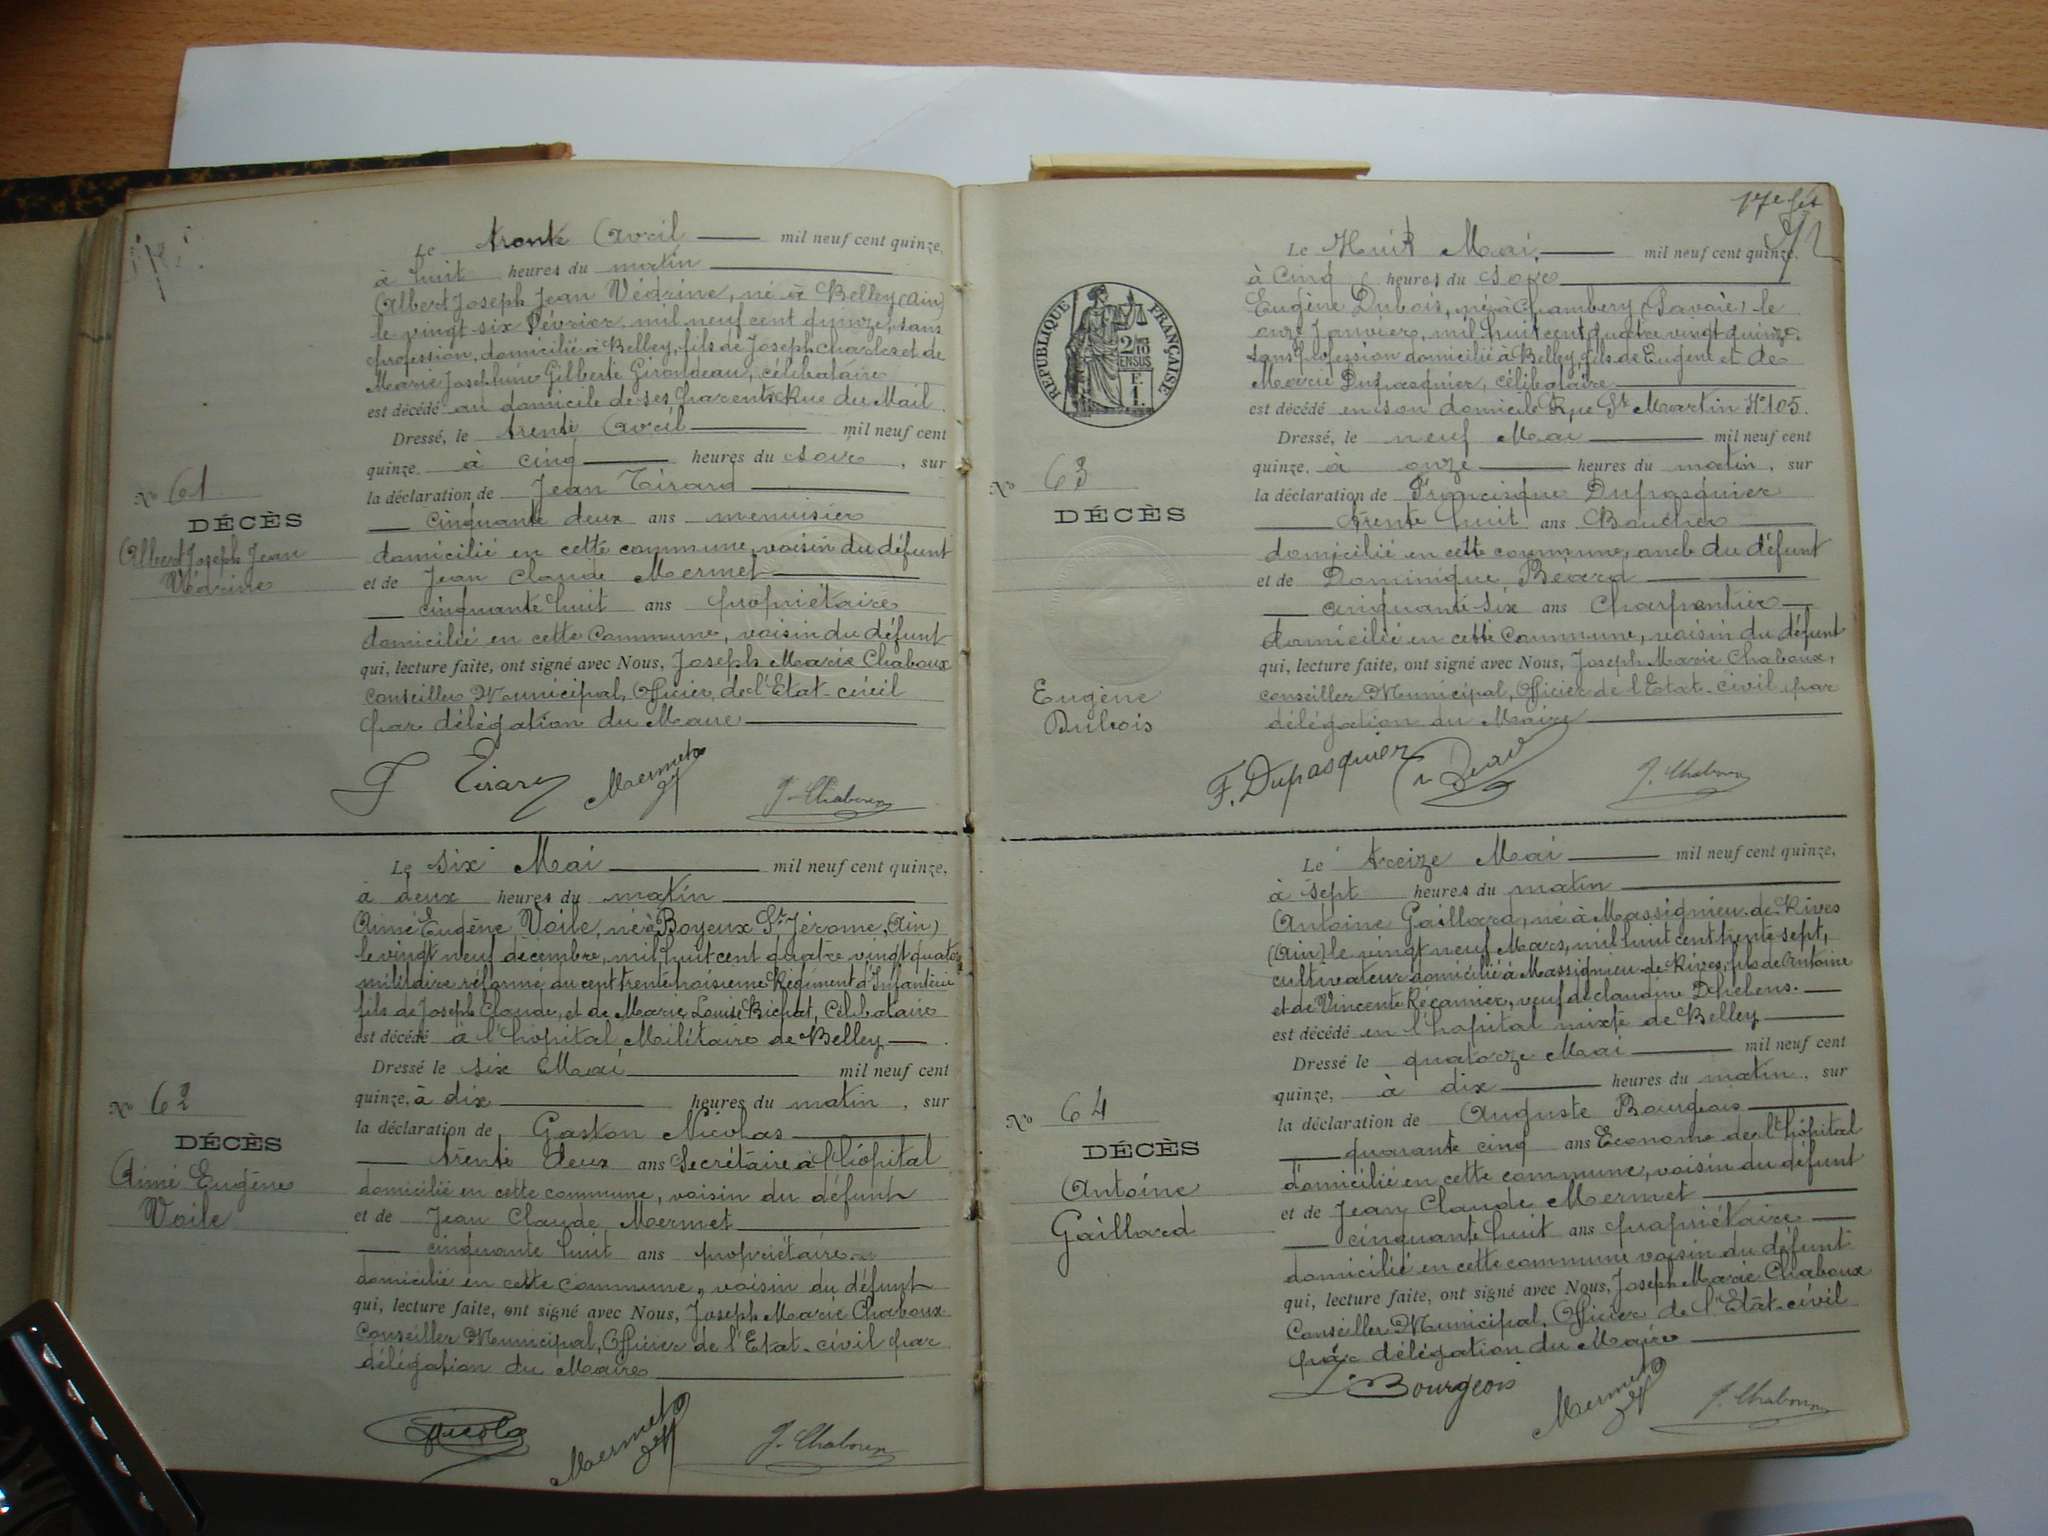 Le trente Avril mil neuf cent quinze,
à huit heures du matin
Albert Joseph Jean Védrine, né à Belley (Ain)
le vingt six Février mil neuf cent quinze, sans
profession, domicilié à Belley, fils de Joseph Charles et de
Marie Josephine Gilberte Giraudeau, célibataire
est décédé au domicile de ses parents Rue du Mail.
Dressé, le trente Avril mil neuf cent
quinze, à cinq heures du soir, sur
la déclaration de Jean Tirard
cinquante deux ans menuisier
domicilié en cette commune, voisin du défunt
et de Jean Claude Mermet
cinquante huit ans propriétaire
domicilié en cette Commune, voisin du défunt
qui, lecture faite, ont signé avec Nous, Joseph Marie Chaboux
Conseiller Municipal, Officier de l'Etat-civil
par délégation du Maire
No 61
DÉCÈS
Albert Joseph Jean
Védrine
Mermet
J. Chaboux
Le six Mai mil neuf cent quinze,
à deux heures du matin
Aimé Eugène Voile, né à Boyeux St Jérome, (Ain)
le vingt neuf décembre, mil huit cent quatre vingt quatorze
militaire réformé du cent trente troisième Régiment d'Infanterie
fils de Joseph Claude, et de Marie Louise Bichat, Célibataire
est décédé à l'hôpital Militaire de Belley
Dressé le six Mai mil neuf cent
quinze, à dix heures du matin, sur
la déclaration de Gaston Nicolas
trente deux ans Secrétaire à l'hôpital
domicilié en cette commune, voisin du défunt
et de Jean Claude Mermet
cinquante huit ans propriétaire
domicilié en cette commune, voisin du défunt
qui, lecture faite, ont signé avec Nous, Joseph Marie Chaboux
Conseiller Municipal, Officier de l'Etat-civil par
délégation du Maire
No 62
DÉCÈS
Aimé Eugène
Voile
Mermet
J. Chaboux
17e
Le Huit Mai mil neuf cent quinze,
à Cinq heures du soir
Eugène Dubois, né à Chambery (Savoie) le
onze Janvier, mil huit cent quatre vingt quinze
sans profession domicilié à Belley fils de Eugène et de
Marie Dupasquier, célibataire
est décédé en son domicile Rue St Martin No 105.
Dressé, le neuf Mai mil neuf cent
quinze, à onze heures du matin, sur
la déclaration de Francisque Dupasquier
trente huit ans Boucher
domicilié en cette commune, oncle du défunt
et de Dominique Bévard
cinquante-six ans Charpentier
domicilié en cette Commune, voisin du défunt
qui, lecture faite, ont signé avec Nous, Joseph Marie Chaboux,
conseiller Municipal, Officier de l'Etat-civil par
délégation du Maire
RÉPUBLIQUE FRANÇAISE
2/10 EN SUS
1 F.
No 63
DÉCÈS
Eugène
Dubois
F. Dupasquier
J. Chaboux
Le treize Mai mil neuf cent quinze,
à sept heures du matin
Antoine Gaillard, né à Massignieu-de-Rives
(Ain) le vingt neuf Mars, mil huit cent trente-sept,
cultivateur domicilié à Massignieu-de-Rives, fils de Antoine
et de Vincente Récamier, veuf de Claudine Dthelens.
est décédé en l'hopital mixte de Belley
Dressé le quatorze Mai mil neuf cent
quinze, à dix heures du matin, sur
la déclaration de Auguste Bourgeois
quarante cinq ans Econome de l'hôpital
domicilié en cette commune, voisin du défunt
et de Jean Claude Mermet
cinquante huit ans propriétaire
domicilié en cette commune voisin du défunt
qui, lecture faite, ont signé avec Nous, Joseph Marie Chaboux
Conseiller Municipal, Officier de l'Etat-civil
par délégation du Maire
No 64
DÉCÈS
Antoine
Gaillard
Bourgeois
Mermet
J. Chaboux